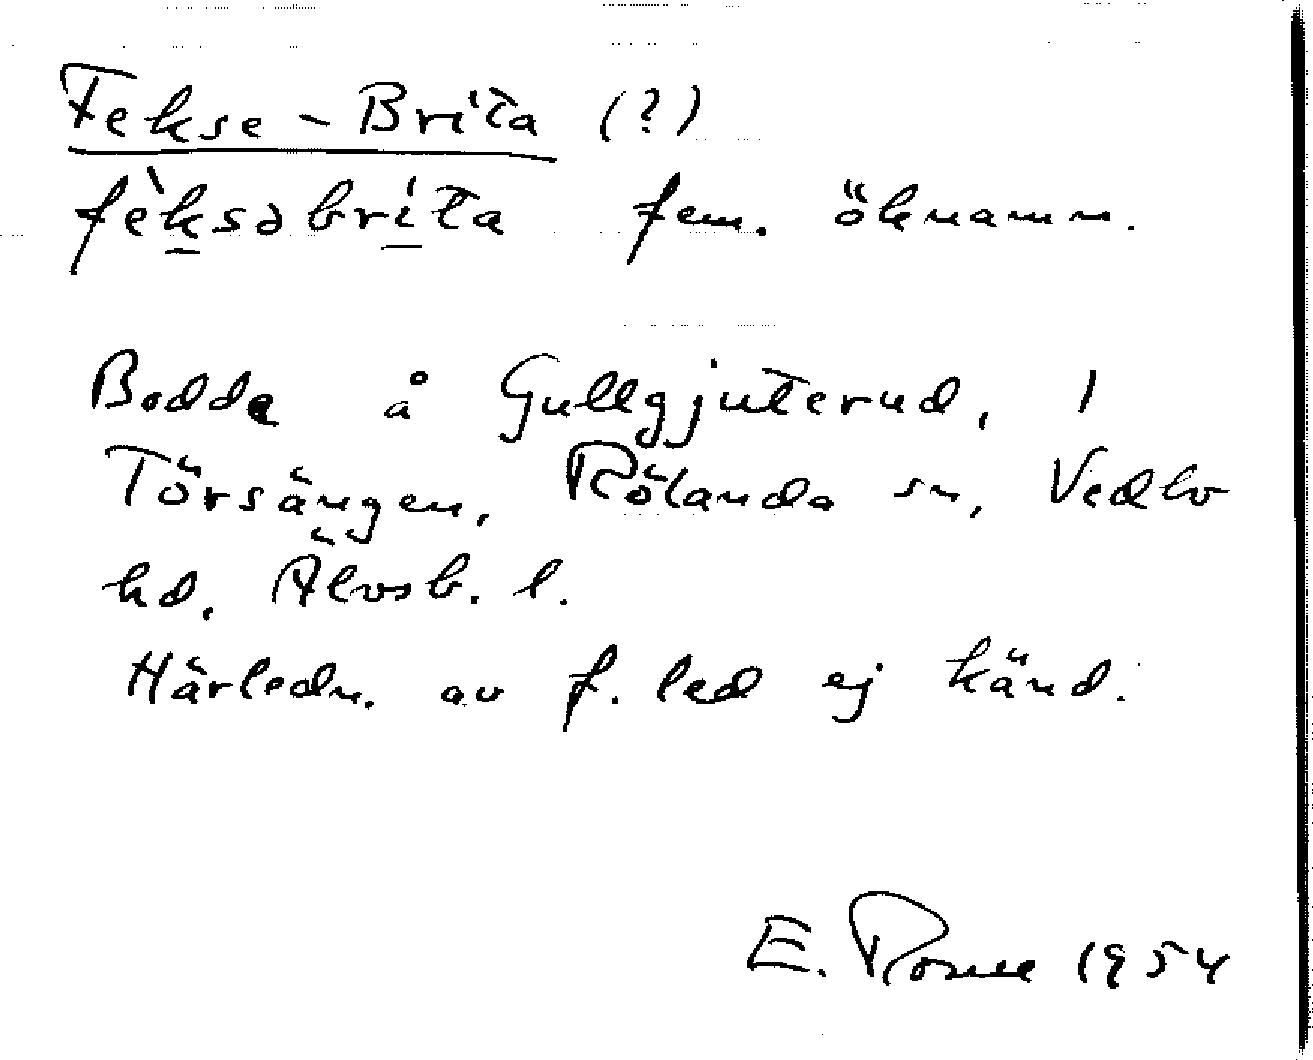 Fekse-Brita (?)
fèksəbrita fem. öknamn.
Bodde å Gullgjuterud, 1
Törsängen, Rölanda sn, Vedbo
hd. Älvsb. l.
Härledn. av f. led ej känd.
E. 1954